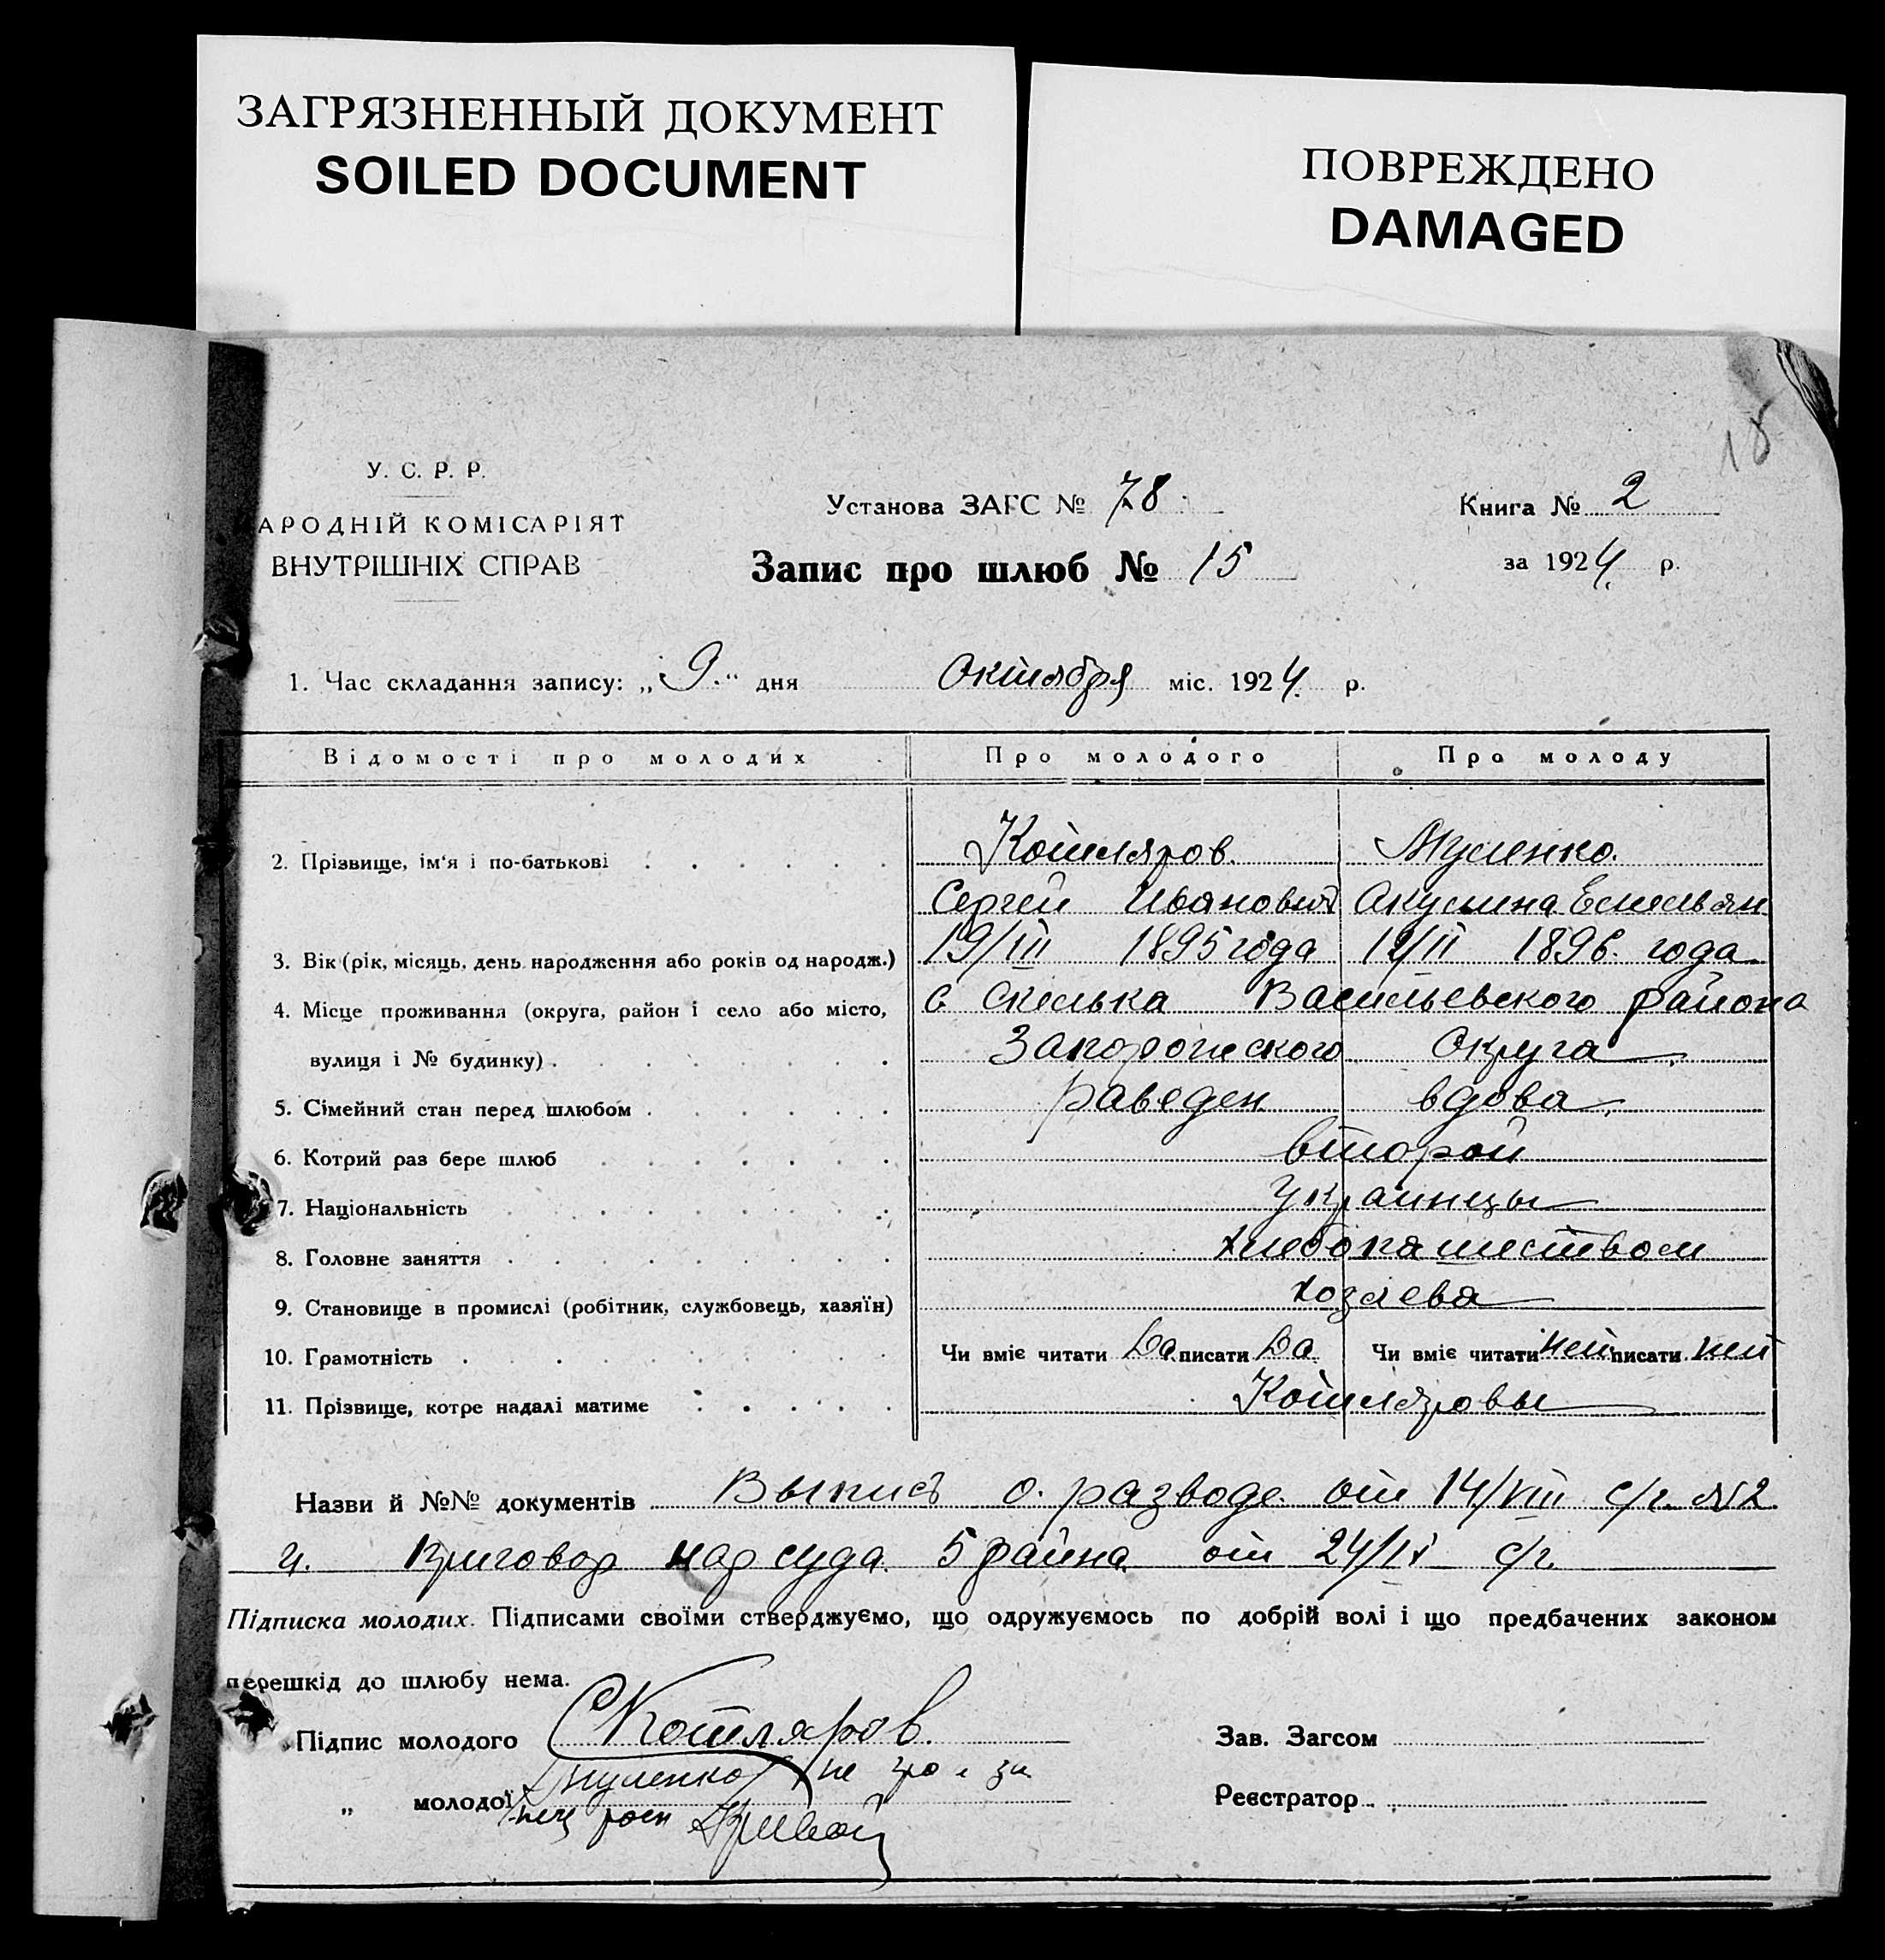 ЗАГРЯЗНЕННЫЙ ДОКУМЕНТ
SOILED DOCUMENT
ПОВРЕЖДЕНО
DAMAGED
18
У. С. Р. Р.
АРОДНІЙ КОМІСАРІЯТ
ВНУТРІШНІХ СПРАВ
Установа ЗАГС № 78
Запис про шлюб № 15
Книга № 2
за 1924 р.
1. Час складання запису: „9." дня Октября міс. 1924. р.
Відомості про молодих Про молодого Про молоду
2. Прізвище, ім'я і по-батькові Котляров. Мусиенко.
Сергей Иванович Акулина Емельян
3. Вік (рік, місяць, день народження або років од народж.) 19/III 1895 года 12/II 1896. года
4. Місце проживання (округа, район і село або місто, С Скелька Васильевского района
вулиця і № будинку) Запорожского Округа
5. Сімейний стан перед шлюбом раведен вдова
6. Котрий раз бере шлюб второй
7. Національність Украинцы
8. Головне заняття хлебопашеством
9. Становище в промислі (робітник, службовець, хазяїн) хозяева
10. Грамотність Чи вміє читати Да писати Да Чи вміє читати нет писати нет
11. Прізвище, котре надалі матиме Котляровы
Назви й №№ документів Выпись о разводе от 14/VIII с/г. №2
и. Приговор нар суда 5 района от 24/IX с/г.
Підписка молодих. Підписами своїми стверджуємо, що одружуємось по добрій волі і що предбачених законом
перешкід до шлюбу нема.
Підпис молодого СКотляров.
Зав. Загсом
„ молодої не гра за
Реєстратор